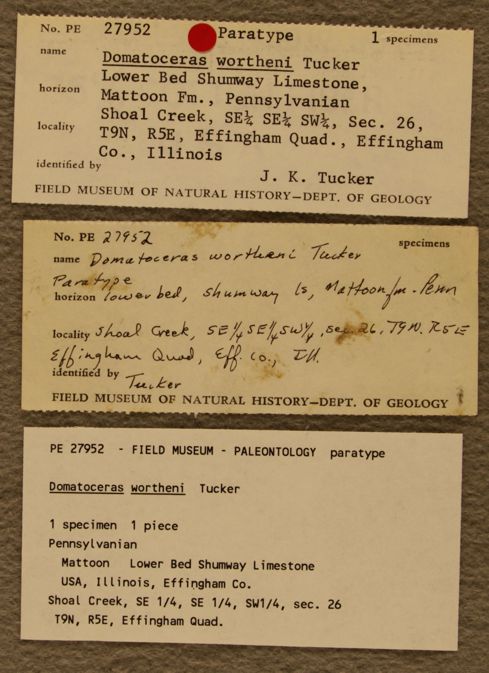 No. PE 27952 Paratype 1 specimens
name Domatoceras wortheni Tucker
Lower Bed Shumway Limestone,
horizon Mattoon Fm., Pennsylvanian
Shoal Creek, SE¼ SE¼ SW¼, Sec. 26,
locality T9N, R5E, Effingham Quad., Effingham
Co., Illinois
identified by J. K. Tucker
FIELD MUSEUM OF NATURAL HISTORY—DEPT. OF GEOLOGY
No. PE 27952 specimens
name Domatoceras wortheni Tucker
Paratype
horizon lower bed, Shumway ls, Mattoon fm. Penn
locality Shoal Creek, SE¼ SE¼ SW¼, sec. 26, T9N. R5E
Effingham Quad, Eff. Co., Ill.
identified by Tucker
FIELD MUSEUM OF NATURAL HISTORY—DEPT. OF GEOLOGY
PE 27952 - FIELD MUSEUM - PALEONTOLOGY paratype
Domatoceras wortheni Tucker
1 specimen 1 piece
Pennsylvanian
Mattoon Lower Bed Shumway Limestone
USA, Illinois, Effingham Co.
Shoal Creek, SE 1/4, SE 1/4, SW1/4, sec. 26
T9N, R5E, Effingham Quad.